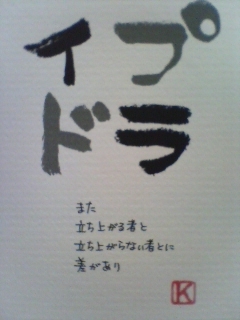 プライド
また
立ち上がる者と
立ち上がらない者とに
差があり
K